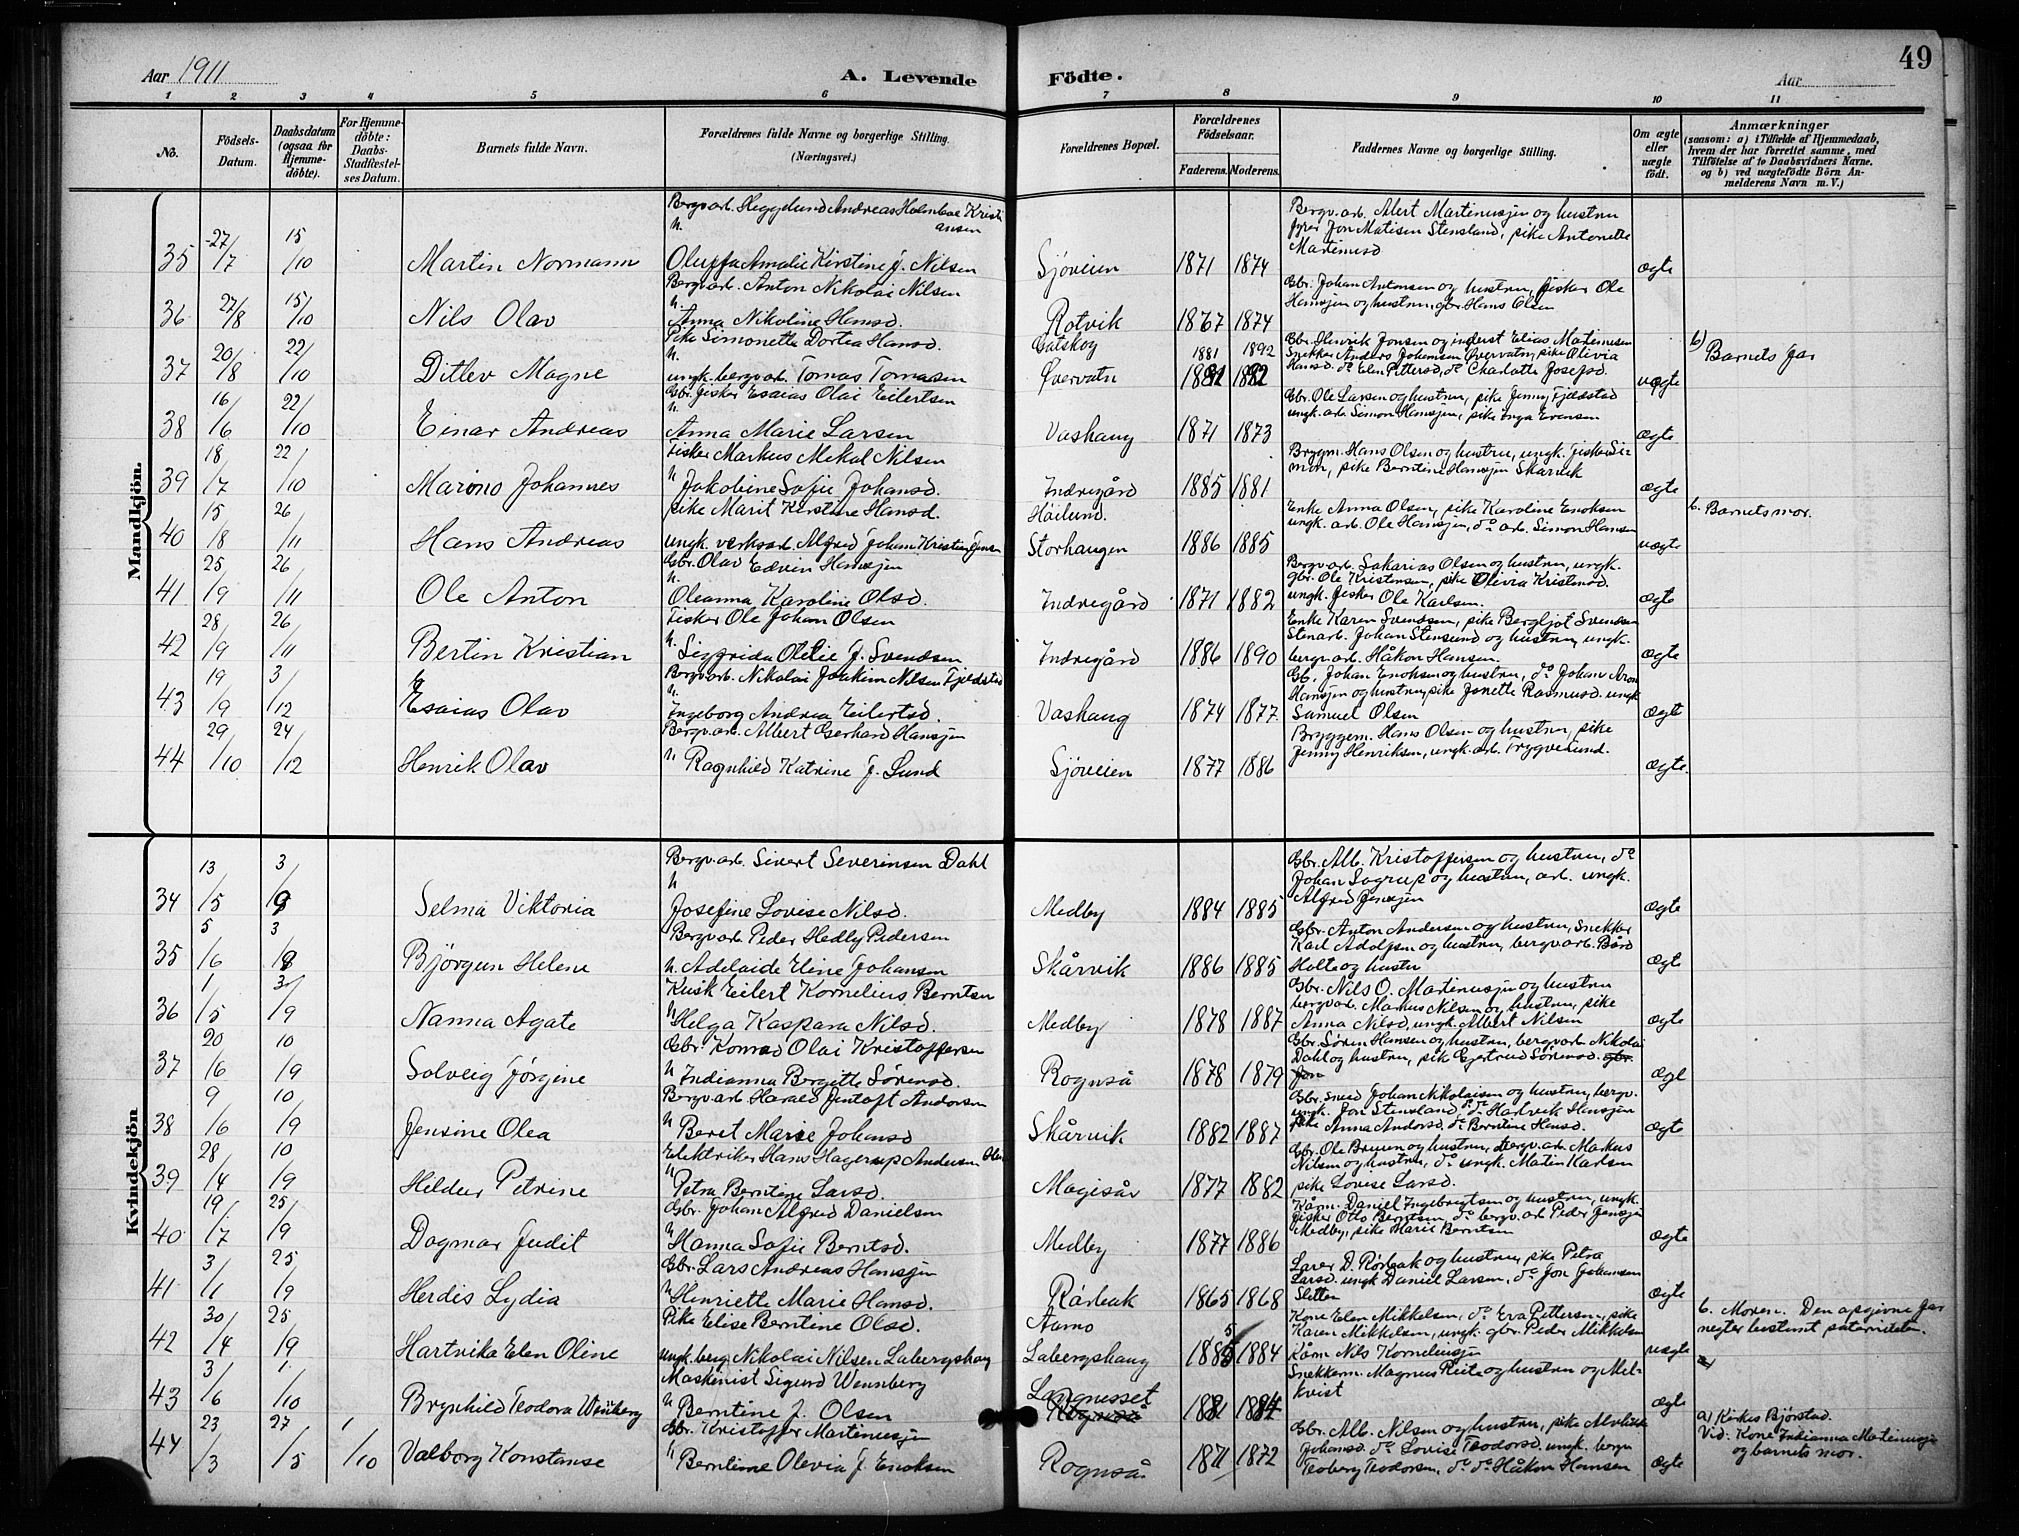 49
Aar 1911
A. Levende
Födte.
Aar
1 2 3 4 5 6 7 8 9 10 11
No.
Födsels-Datum.
Daabsdatum (ogsaa for Hjemme-döbte).
For Hjemme-döbte: Daabs-Stadfæstel-ses Datum.
Barnets fulde Navn.
Forældrenes fulde Navne og borgerlige Stilling. (Næringsvei.)
Forældrenes Bopæl.
Forældrenes Födselsaar.
Faderens. Moderens.
Faddernes Navne og borgerlige Stilling.
Om ægte eller uægte födt.
Anmærkninger
(saasom: a) i Tilfælde af Hjemmedaab, hvem der har forrettet samme, med Tilföielse af to Daabsvidners Navne, og b) ved uægtefödte Börn An-melderens Navn m. V.)
Mandkjön.
Bergv.arb. Heggelund Andreas Holmboe Kristi
ansen
Bergv.arb. Albert Martinussen og hustru
Jon Matisen Stensland, pike Antonette
Martinusd
35 27/7 15/10 Martin Normann Oluffa Amalie Kirstine f. Nilsen Sjöveien 1871 1874 ægte
Bergv.arb. Anton Nikolai Nilsen
Gbr. Johan Antonsen og hustru, fisker Ole
Hansen og hustru, gbr. Hans Olsen
36 27/8 15/10 Nils Olav Anna Nikoline Hansd. Rotvik 1867 1874
Pike Simonette Dortea Hansd. Gatskog 1881 1892
Gbr. Henrik Jonsen og inderst Elias Martinusen
Snekker Anders Johansen Övervatn, pike Olivia
Hansd. do Elen Pettersd, do Charlotte Josefsd.
b) Barnets far
37 20/8 22/10 Ditlev Magne ungk. bergv.arb. Tomas Tomasen Övervatn uægte
Gbr. fisker Esaias Olai Eilertsen
Gbr. Ole Larsen og hustru, pike Jenny Fjeldstad
ungk. arb. Simon Hansen, pike Inga Evensen
38 16/6 22/10 Einar Andreas Anna Marie Larsen Vashaug 1871 1873 ægte
Fisker Markus Mekal Nilsen
Bryggm. Hans Olsen og hustru, ungk. fisker Si-
mon, pike Berntine Hansen Skårvik
39 18/7 22/10 Marino Johannes Jakobine Sofie Johansd. Indregård 1885 1881 ægte
pike Marit Kirstine Hansd. Höilund.
Enke Anna Olsen, pike Karoline Enoksen
ungk. arb. Ole Hansen, do arb. Simon Hansen
b. Barnets mor.
40 15/8 26/11 Hans Andreas ungk. verksarb. Alfred Johan Kristian Jensen Storhaugen 1886 1885 uægte
Gbr. Olav Edvin Hansen
Bergv.arb. Sakarias Olsen og hustru, ungk.
gbr. Ole Kristensen, pike Olivia Kristensd.
ungk. fisker Ole Karlsen.
41 25/9 26/11 Ole Anton Oleanna Karoline Olsd. Indregård 1871 1882 ægte
Fisker Ole Johan Olsen
Enke Karen Svendsen, pike Bergljot Svendsen
Stenarb. Johan Stensund og hustru, ungk.
bergv.arb. Håkon Hansen.
42 28/9 26/11 Bertin Kristian Sigfrida Otelie f. Svendsen Indregård 1886 1890 ægte
Bergv.arb. Nikolai Joakim Nilsen Fjeldstad
Gb. Johan Enoksen og hustru, do Johan Aron
Hansen og hustru, pike Janette Rasmusd. ungk
Samuel Olsen
43 19/9 3/12 Esaias Olav Ingeborg Andrea Eilertsd. Vashaug 1874 1877 ægte
Bergv.arb. Albert Gerhard Hansen
Bryggem. Hans Olsen og hustru, pike
Jenny Henriksen, ungk. arb. Trygve Lund.
44 29/10 24/12 Henrik Olav Ragnhild Katrine f. Lund Sjöveien 1877 1886 ægte.
Kvindekjön
Bergv.arb. Sivert Severinsen Dahl
Gbr. Alb. Kristoffersen og hustru, do
Johan Lagrup og hustru, arb. ungk.
Alfred Jensen
34 13/5 3/9 Selma Viktoria Josefine Lovise Nilsd. Medby 1884 1885 ægte
Bergv.arb. Peder Hedly Pedersen
Gbr. Anton Andersen og hustru, Snekker
Karl Adolfsen og hustru, bergv.arb. Bård
Holte og hustru
35 5/6 3/9 Björgun Helene Adelaide Eline Johansen Skårvik 1886 1885 ægte
Kusk Eilert Kornelius Berntsen
Gbr. Nils O. Martinussen og hustru
bergv.arb. Markus Nilsen og hustru, pike
Anna Nilsd, ungk. Albert Nilsen
36 1/5 3/9 Nanna Agate Helga Kaspara Nilsd. Medby 1878 1887 ægte
Gbr. Konrad Olai Kristoffersen
Gbr. Sören Hansen og hustru, bergv.arb Nikolai
Dahl og hustru, pik Gjertrud Sörensd. gbr.
Jon
37 20/6 10/9 Solveig Jörgine Indianna Bergitte Sörensd. Rognså 1878 1879 ægte
Bergv.arb Harald Jentoft Andorsen
Gbr. Johan Nikolaisen og hustru, bergv.
ungk. Jon Stensland, do Hartvik Hansen
pike Anna Andorsd, do Berntine Hansd.
38 9/6 10/9 Jensine Olea Beret Marie Johansd Skårvik 1882 1887 ægte
Elektriker Hans Hagerup Andersen
Gbr. Ole Bruun og hustru, bergv.arb Markus
Nilsen og hustru, do ungk. Matin Karlsen
pike Lovise Larsd.
39 28/4 10/9 Hildur Petrine Petra Berntine Larsd. Mogisår 1877 1882
Gbr. Johan Alfred Danielsen
Kårm. Daniel Ingebrigtsen og hustru, ungk.
fisker Otto Berntsen, do bergv.arb Peder Jensen
Medby, pike Marie Berntsen
40 19/7 25/9 Dagmar Judit Hanna Sofie Berntsd. Medby 1877 1886 ægte
Gbr. Lars Andreas Hansen
Lærer D. Rörbak og hustru, pike Petra
Larsd. ungk Daniel Larsen, do Jon Johansen
Sletten
41 3/1 25/9 Herdis Lydia Henriette Marie Hansd. Rörbak 1865 1868 ægte
Pike Elise Berntine Olsd. Aamo
Kone Elen Mikkelsen, do Eva Pettersen, pike
Karen Mikkelsen, ungk. gbr. Peder Mikkelsen
Kårm Nils Kornelius
b. Moren. Den opgivne far
negter bestemt paterniteten.
42 30/4 25/9 Hartvika Elen Oline ungk. berg. Nikolai Nilsen Labergshaug Labergshaug 1885 1884 uægte
Maskinist Sigurd Wennberg Langneset
Snekkerm. Magnus Reite og hustru og Mel-
kvist
43 3/6 1/10 Brynhild Teodora Wenberg Berntine f. Olsen Rognså 1881 1884 ægte
Gbr. Kristoffer Martinussen
Gbr. Alb. Nilsen og hustru, pike
Johansd. do Lovise Teodorsd, ungk. bergv
Toberg Teodorsen, do do Håkon Hansen
a) Kirkes. Bjørstad.
Vid: Kone Indianna Martinussen
og barnets mor.
44 23/3 27/5 1/10 Valborg Konstanse Berntine Olevia f. Enoksen Rognså 1871 1872 ægte